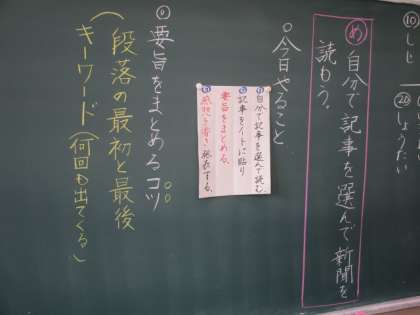 ⑩しじ
⑳しょうたい
め 自分で記事を選んで新聞を
読もう。
○今日やること、
①自分で記事を選んで読む。
②記事をノートに貼り
要旨をまとめる。
③感想を書き、発表する。
◎要旨をまとめるコツ
段落の最初と最後
キーワード(何回も出てくる)